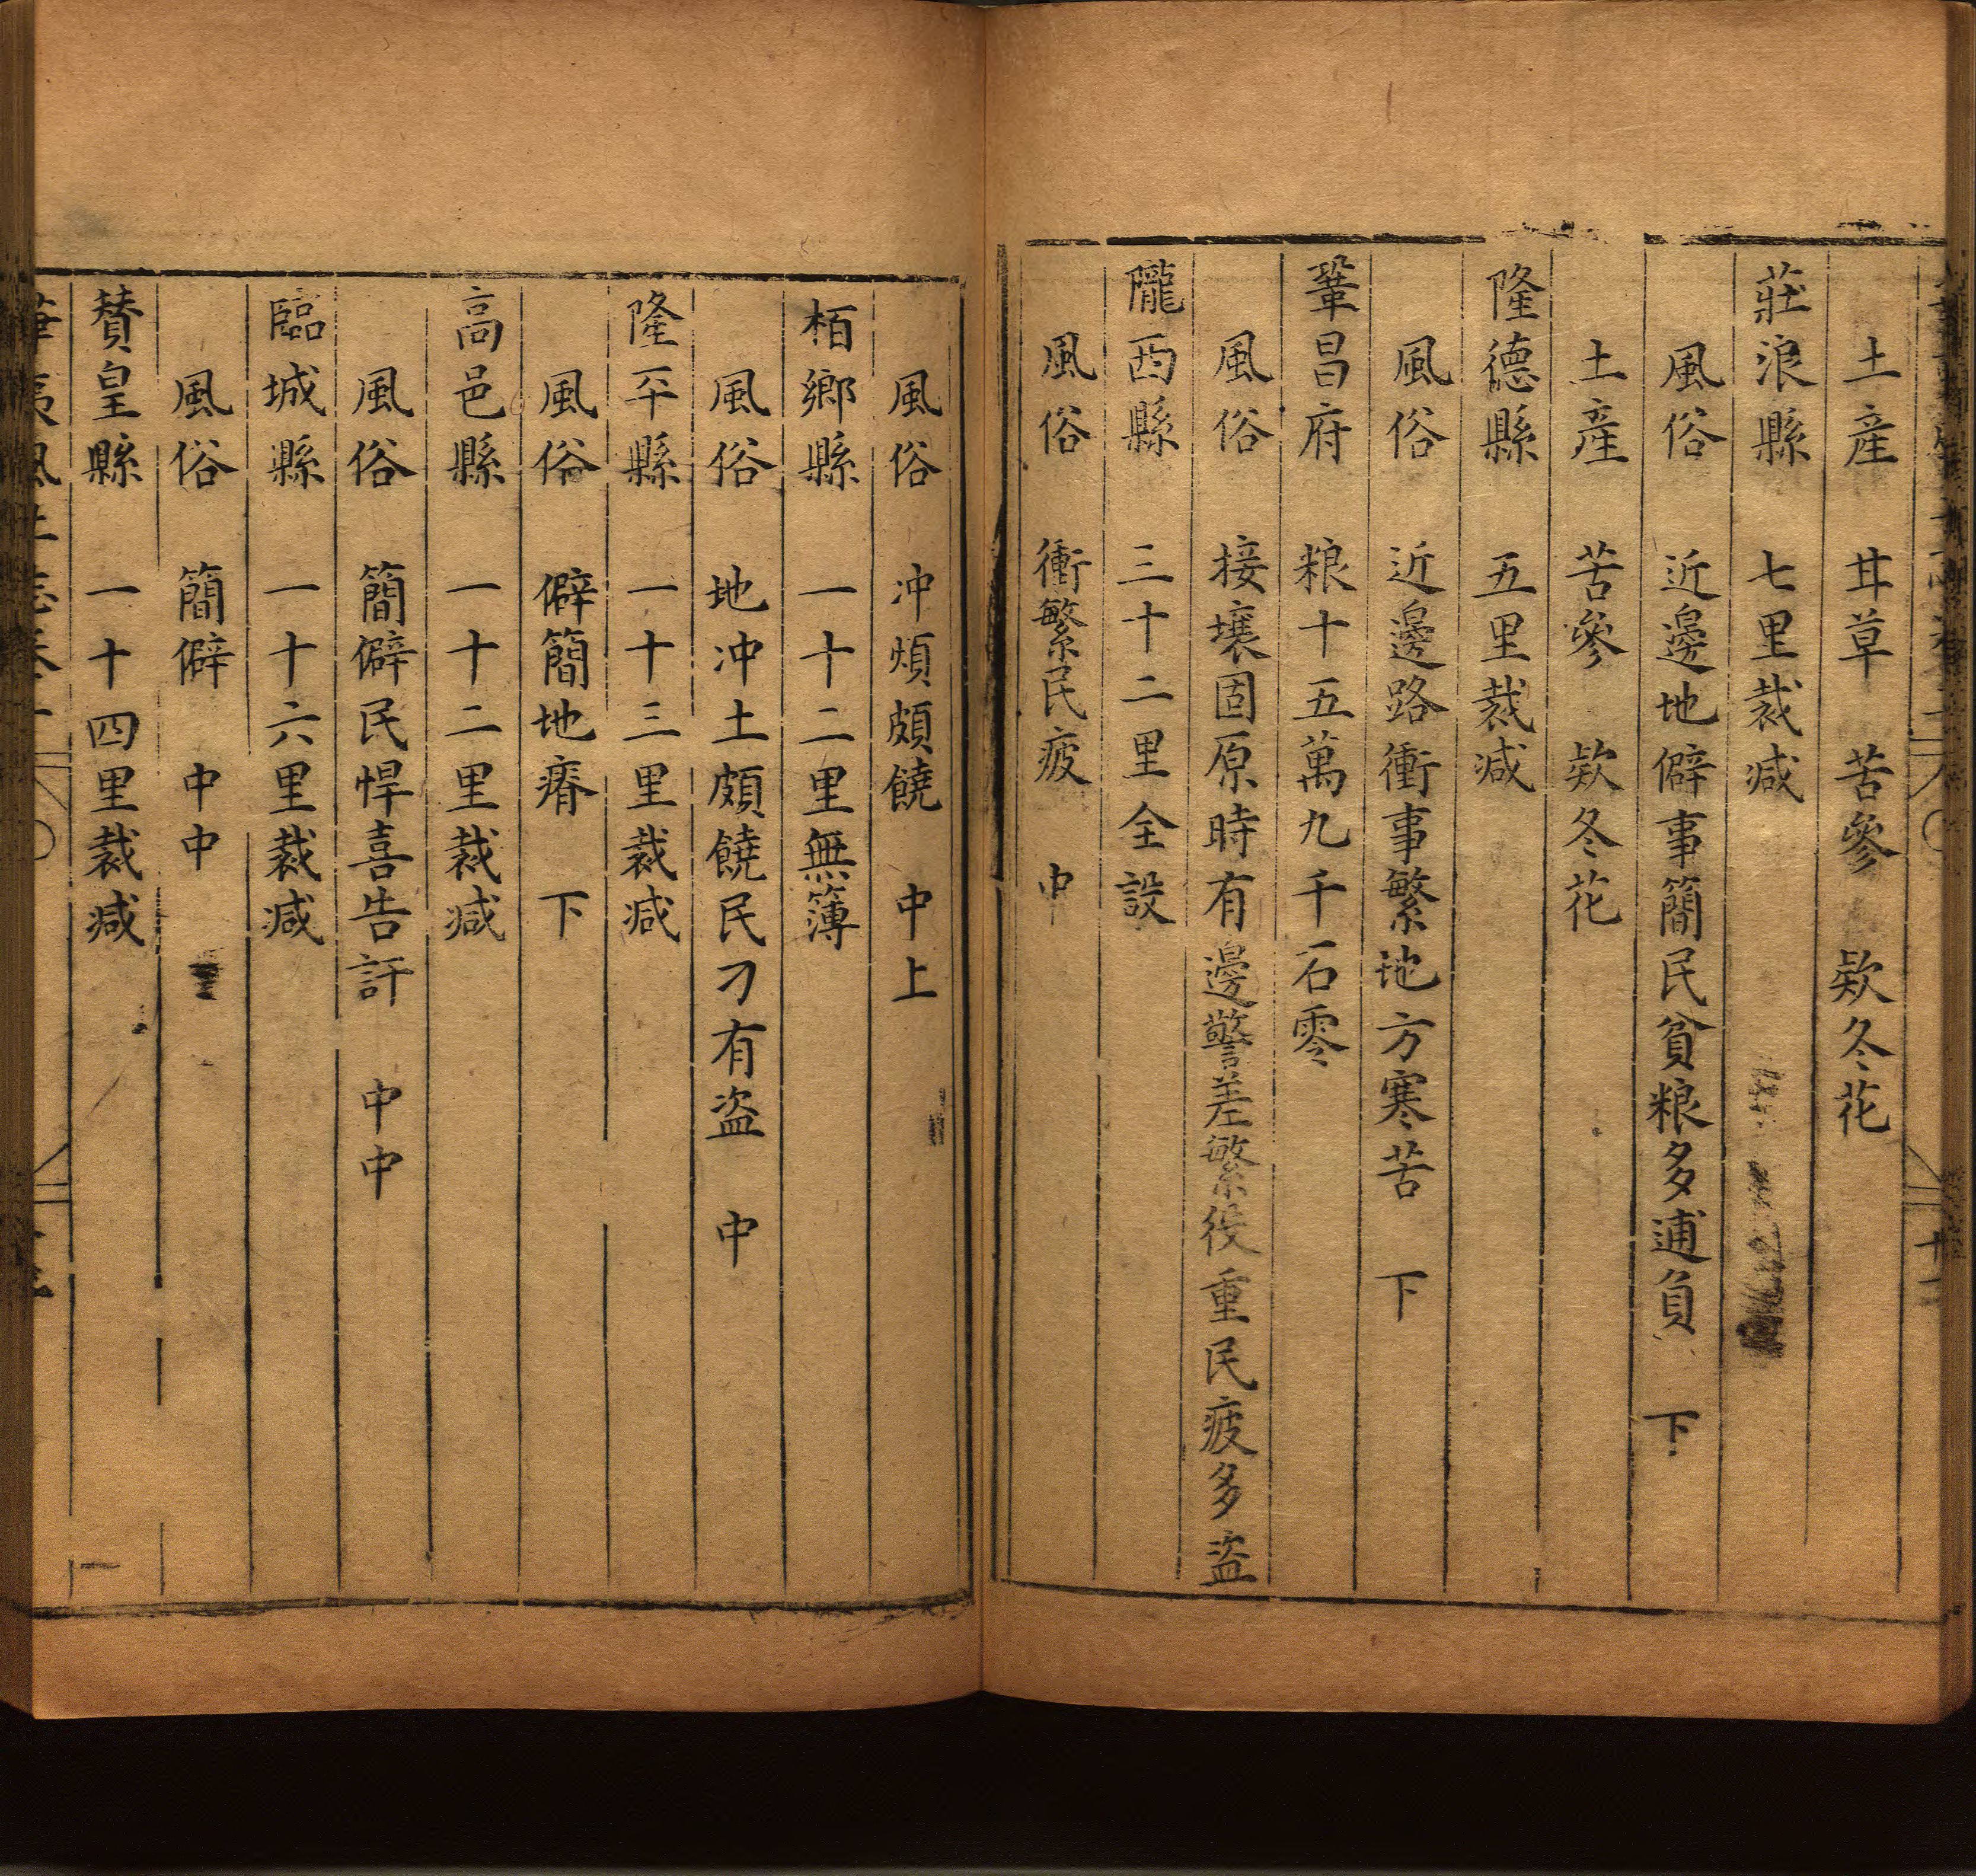 土産　甘草　苦參　欵冬花
莊浪縣　七里裁减
風俗　近邊地僻事簡民貧粮多逋負　下
土産　苦參　欵冬花
隆德縣　五里裁减
風俗　近邊路衝事繁地方寒苦　下
鞏昌府　粮十五萬九千石零
風俗　接壤固原時有邊警差繁役重民疲多盜
隴西縣　三十二里全設
風俗　衝繁民疲　中
風俗　冲煩頗饒　中上
栢鄉縣　一十二里無簿
風俗　地冲土頗饒民刁有盗　中
隆平縣　一十三里裁减
風俗　僻簡地瘠　下
高邑縣　一十二里裁减
風俗　簡僻民悍喜告訐　中中
臨城縣　一十六里裁减
風俗　簡僻　中中
賛皇縣　一十四里裁减